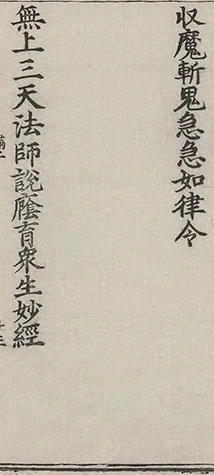 収魔斬鬼急急如律令
無上三天法師說廕育衆生妙經